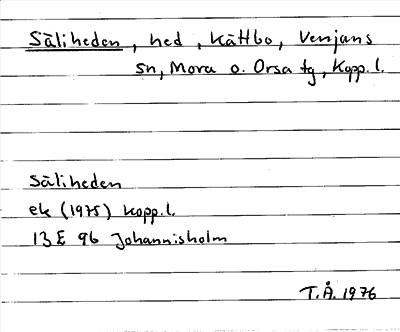 Säliheden, hed, Kättbo, Venjans
sn, Mora o. Orsa tg, Kopp. l.
Säliheden
ek (1975) Kopp. l.
13 E 9b Johannisholm
T.Å. 1976